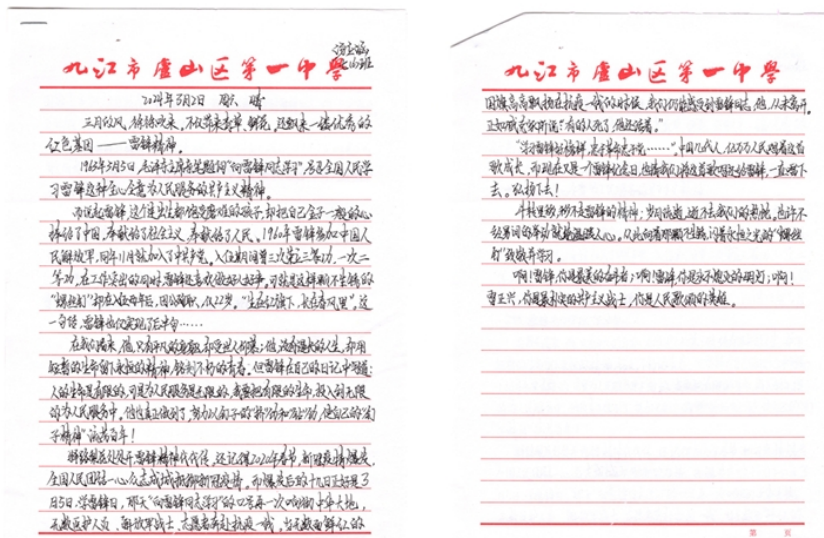 九江市廬山区第一中學
2024年3月2日 周六 晴
三月的风，徐徐吹来，不仅带来芳草、鲜花，还飘来一缕优秀的
红色基因——雷锋精神。
1963年3月5日，毛泽东主席亲笔题词"向雷锋同志学习"，号召全国人民学
习雷锋这种全心全意为人民服务的共产主义精神。
而说起雷锋，这个连出生都饱受磨难的孩子，却把自己金子一般的心
捧给了中国，奉献给了社会主义，奉献给了人民。1960年雷锋参加中国人
民解放军，同年11月就加入了中共产党。入伍期间曾三次立三等功，一次二
等功，在工作突出的同时，雷锋还喜欢做好人好事。可就是这样颗不生锈的
"螺丝钉"却在入伍两年后，因公殉职，仅22岁。"生在红旗下，长在春风里"。这
一句话，雷锋也仅实现了后半句……
在我们看来，他只有平凡的，却受世人仰慕；他，没有漫长的人生，却用
短暂的生命留下永恒的精神，铭刻不朽的青春。但雷锋在自己的日记中写道：
人的生命是有限的，可是为人民服务是无限的，我要把有限的生命，投入到无限
的为人民服务中。他也真正做到了，努力以钉子的"挤"功和"钻"功，使自己的"钉
子精神"流芳百年！
处处开，雷锋精神代代传。还记得2020年春节，新冠疫情爆发，
全国人民团结一心，众志成城抵御新冠疫情。而爆发后的十九日正好是3
月5日，学雷锋日，那天"向雷锋同志学习"的口号再一次响彻中华大地，
无数医护人员、解放军战士、志愿者奔赴抗疫一线，当无数面鲜红的
九江市廬山区第一中學
国旗高高飘扬在抗疫一线的时候，我们仍能感受到雷锋同志，他，从未离开。
正如臧克家所说："有的人死了，他还活着。"
"学习雷锋好榜样，忠于革命忠于党……"。中国几代人，亿万万人民唱着这首
歌成长，而现在又是一个雷锋纪念日，也请我们将这首歌唱给雷锋，一直唱下
去。弘扬下去！
斗转星移，移不去雷锋的精神；岁月流逝，逝不去我们的热忱。也许不
经意间的举动就能温暖人心。从此向着那颗不生锈，闪着永恒之光的"螺丝
钉"致敬并学习。
啊！雷锋，你是最美的奋斗者；啊！雷锋，你是永不熄灭的明灯；啊！
雷正兴，你是最朴实的共产主义战士，你是人民歌颂的英雄。
第 页